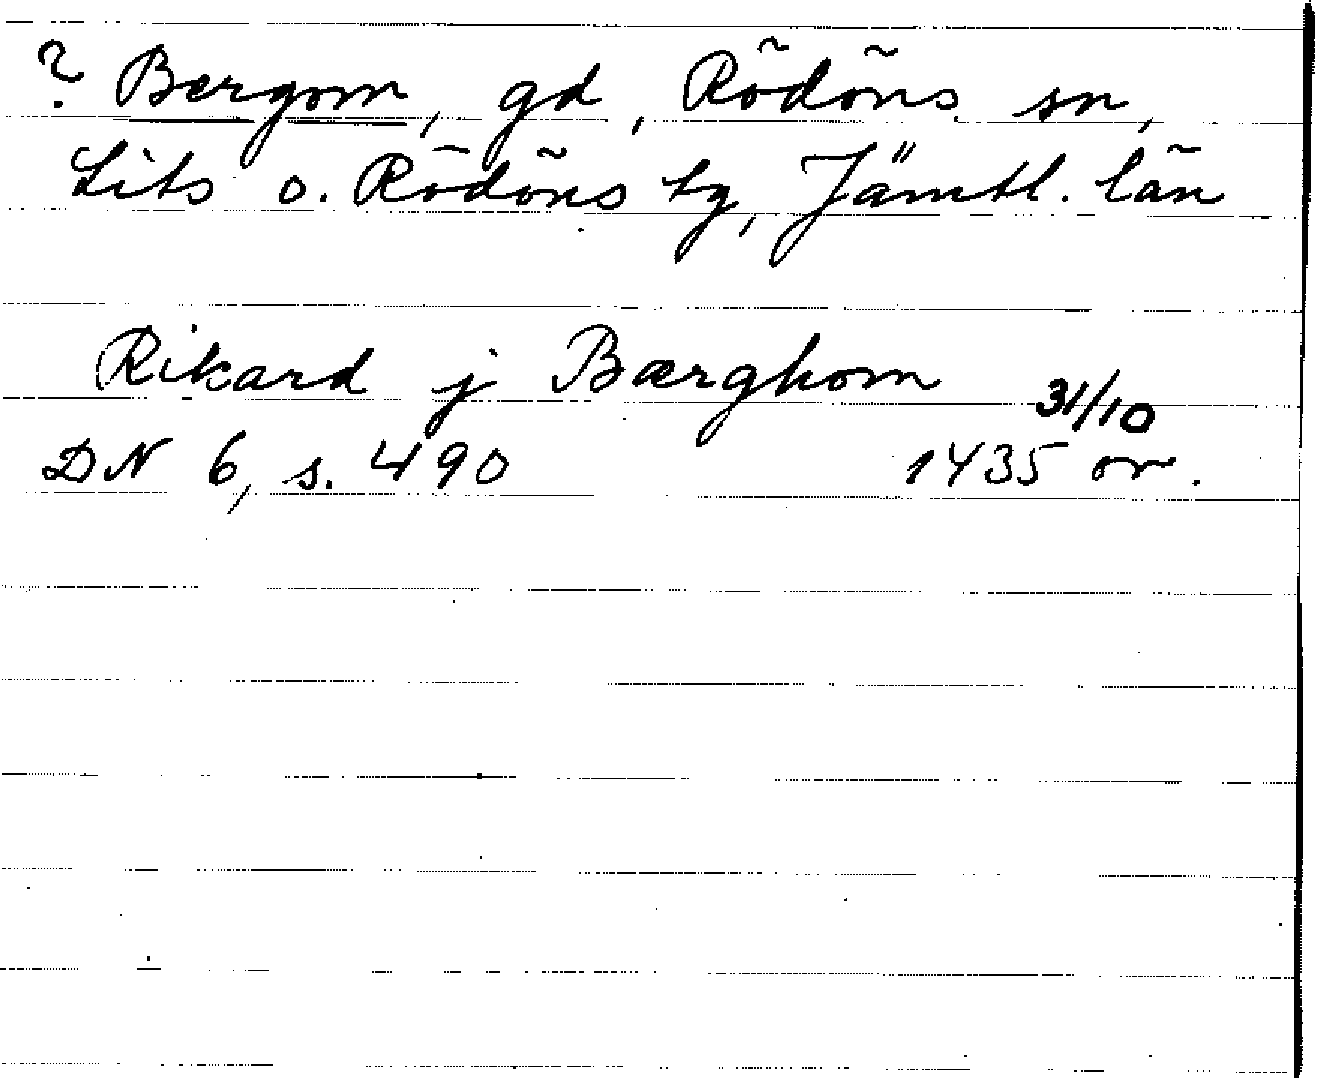 ? Bergom, gd, Rödöns sn,
Lits o. Rödöns tg, Jämtl. län
Rikard j Bærghom 31/10
DN 6, s. 490 1435 or.